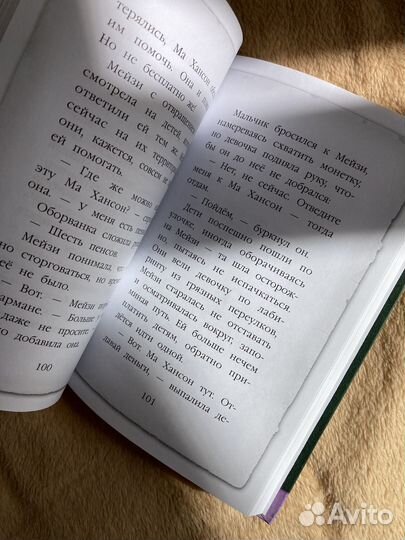 терялись, Ма Хансон
им помочь. Она и
Но не бесплатно
Мейзи с отвращением
смотрела на детей,
ответили ей тем же
сейчас на их территории
они, кажется, совсем не
ей помогать.
— Где же можно
эту Ма Хансон? —
она. — У меня есть
Оборванка сложила
— Шесть пенсов.
Мейзи понимала, что
но сторговаться, но
неё не было.
— Вот. — Мейзи
кармане. — Больше
даже не просите.
добавила она.
100
Мальчик бросился к Мейзи,
намереваясь схватить монетку,
но девочка подняла руку, что-
бы он до неё не добрался:
— Нет, не сейчас. Отведите
меня к Ма Хансон — тогда
отдам.
— Пойдём, — буркнул он.
Дети поспешно пошли по
улочке, иногда оборачиваясь
на Мейзи — та шла осторож-
но, пытаясь не испачкаться.
Они вели девочку по лаби-
ринту из грязных переулков.
Мейзи старалась не отставать
и осматривалась вокруг, запо-
миная путь. Ей больше нечем
платить детям, обратно при-
дётся идти одной.
— Вот. Ма Хансон тут. От-
давай деньги, — выпалила де-
101
Avito